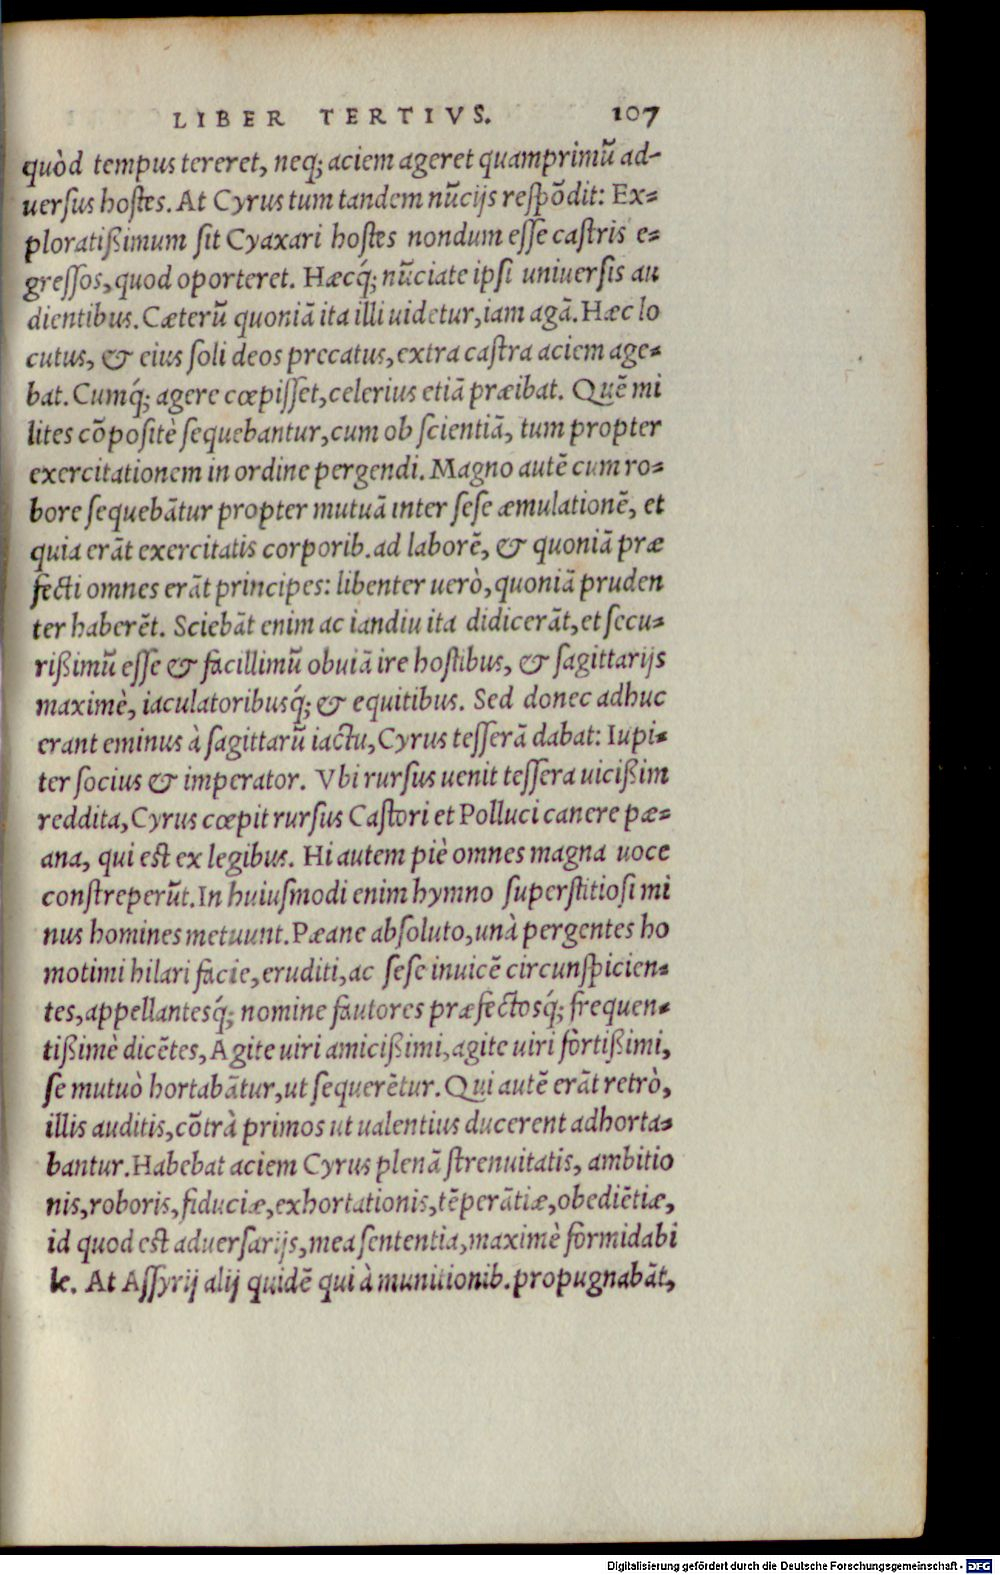 LIBER TERTIVS. 107
quòd tempus tereret, neq; aciem ageret quamprimũ ad-
uersus hostes. At Cyrus tum tandem nũcijs respõdit: Ex-
ploratißimum sit Cyaxari hostes nondum esse castris e-
gressos, quod oporteret. Hæcq́; nũciate ipsi uniuersis au
dientibus. Cæterũ quoniã ita illi uidetur, iam agã. Hæc lo
cutus, & eius soli deos precatus, extra castra aciem age-
bat. Cumq́; agere cœpisset, celerius etiã præibat. Quẽ mi
lites cõpositè sequebantur, cum ob scientiã, tum propter
exercitationem in ordine pergendi. Magno autẽ cum ro-
bore sequebãtur propter mutuã inter sese æmulationẽ, et
quia erãt exercitatis corporib. ad laborẽ, & quoniã præ
fecti omnes erãt principes: libenter uerò, quoniã pruden
ter haberẽt. Sciebãt enim ac iandiu ita didicerãt, et secu-
rißimũ esse & facillimũ obuiã ire hostibus, & sagittarijs
maximè, iaculatoribusq́; & equitibus. Sed donec adhuc
erant eminus à sagittarũ iactu, Cyrus tesserã dabat: Iupi-
ter socius & imperator. Vbi rursus uenit tessera uicißim
reddita, Cyrus cœpit rursus Castori et Polluci canere pæ-
ana, qui est ex legibus. Hi autem piè omnes magna uoce
constreperũt. In huiusmodi enim hymno superstitiosi mi
nus homines metuunt. Pæane absoluto, unà pergentes ho
motimi hilari facie, eruditi, ac sese inuicẽ circunspicien-
tes, appellantesq́; nomine fautores præfectosq́; frequen-
tißimè dicẽtes, Agite uiri amicißimi, agite uiri fortißimi,
se mutuò hortabãtur, ut sequerẽtur. Qui autẽ erãt retrò,
illis auditis, cõtrà primos ut ualentius ducerent adhorta-
bantur. Habebat aciem Cyrus plenã strenuitatis, ambitio
nis, roboris, fiduciæ, exhortationis, tẽperãtiæ, obediẽtiæ,
id quod est aduersarijs, mea sententia, maximè formidabi
le. At Assyrij alij quidẽ qui à munitionib. propugnabãt,
Digitalisierung gefördert durch die Deutsche Forschungsgemeinschaft - DFG